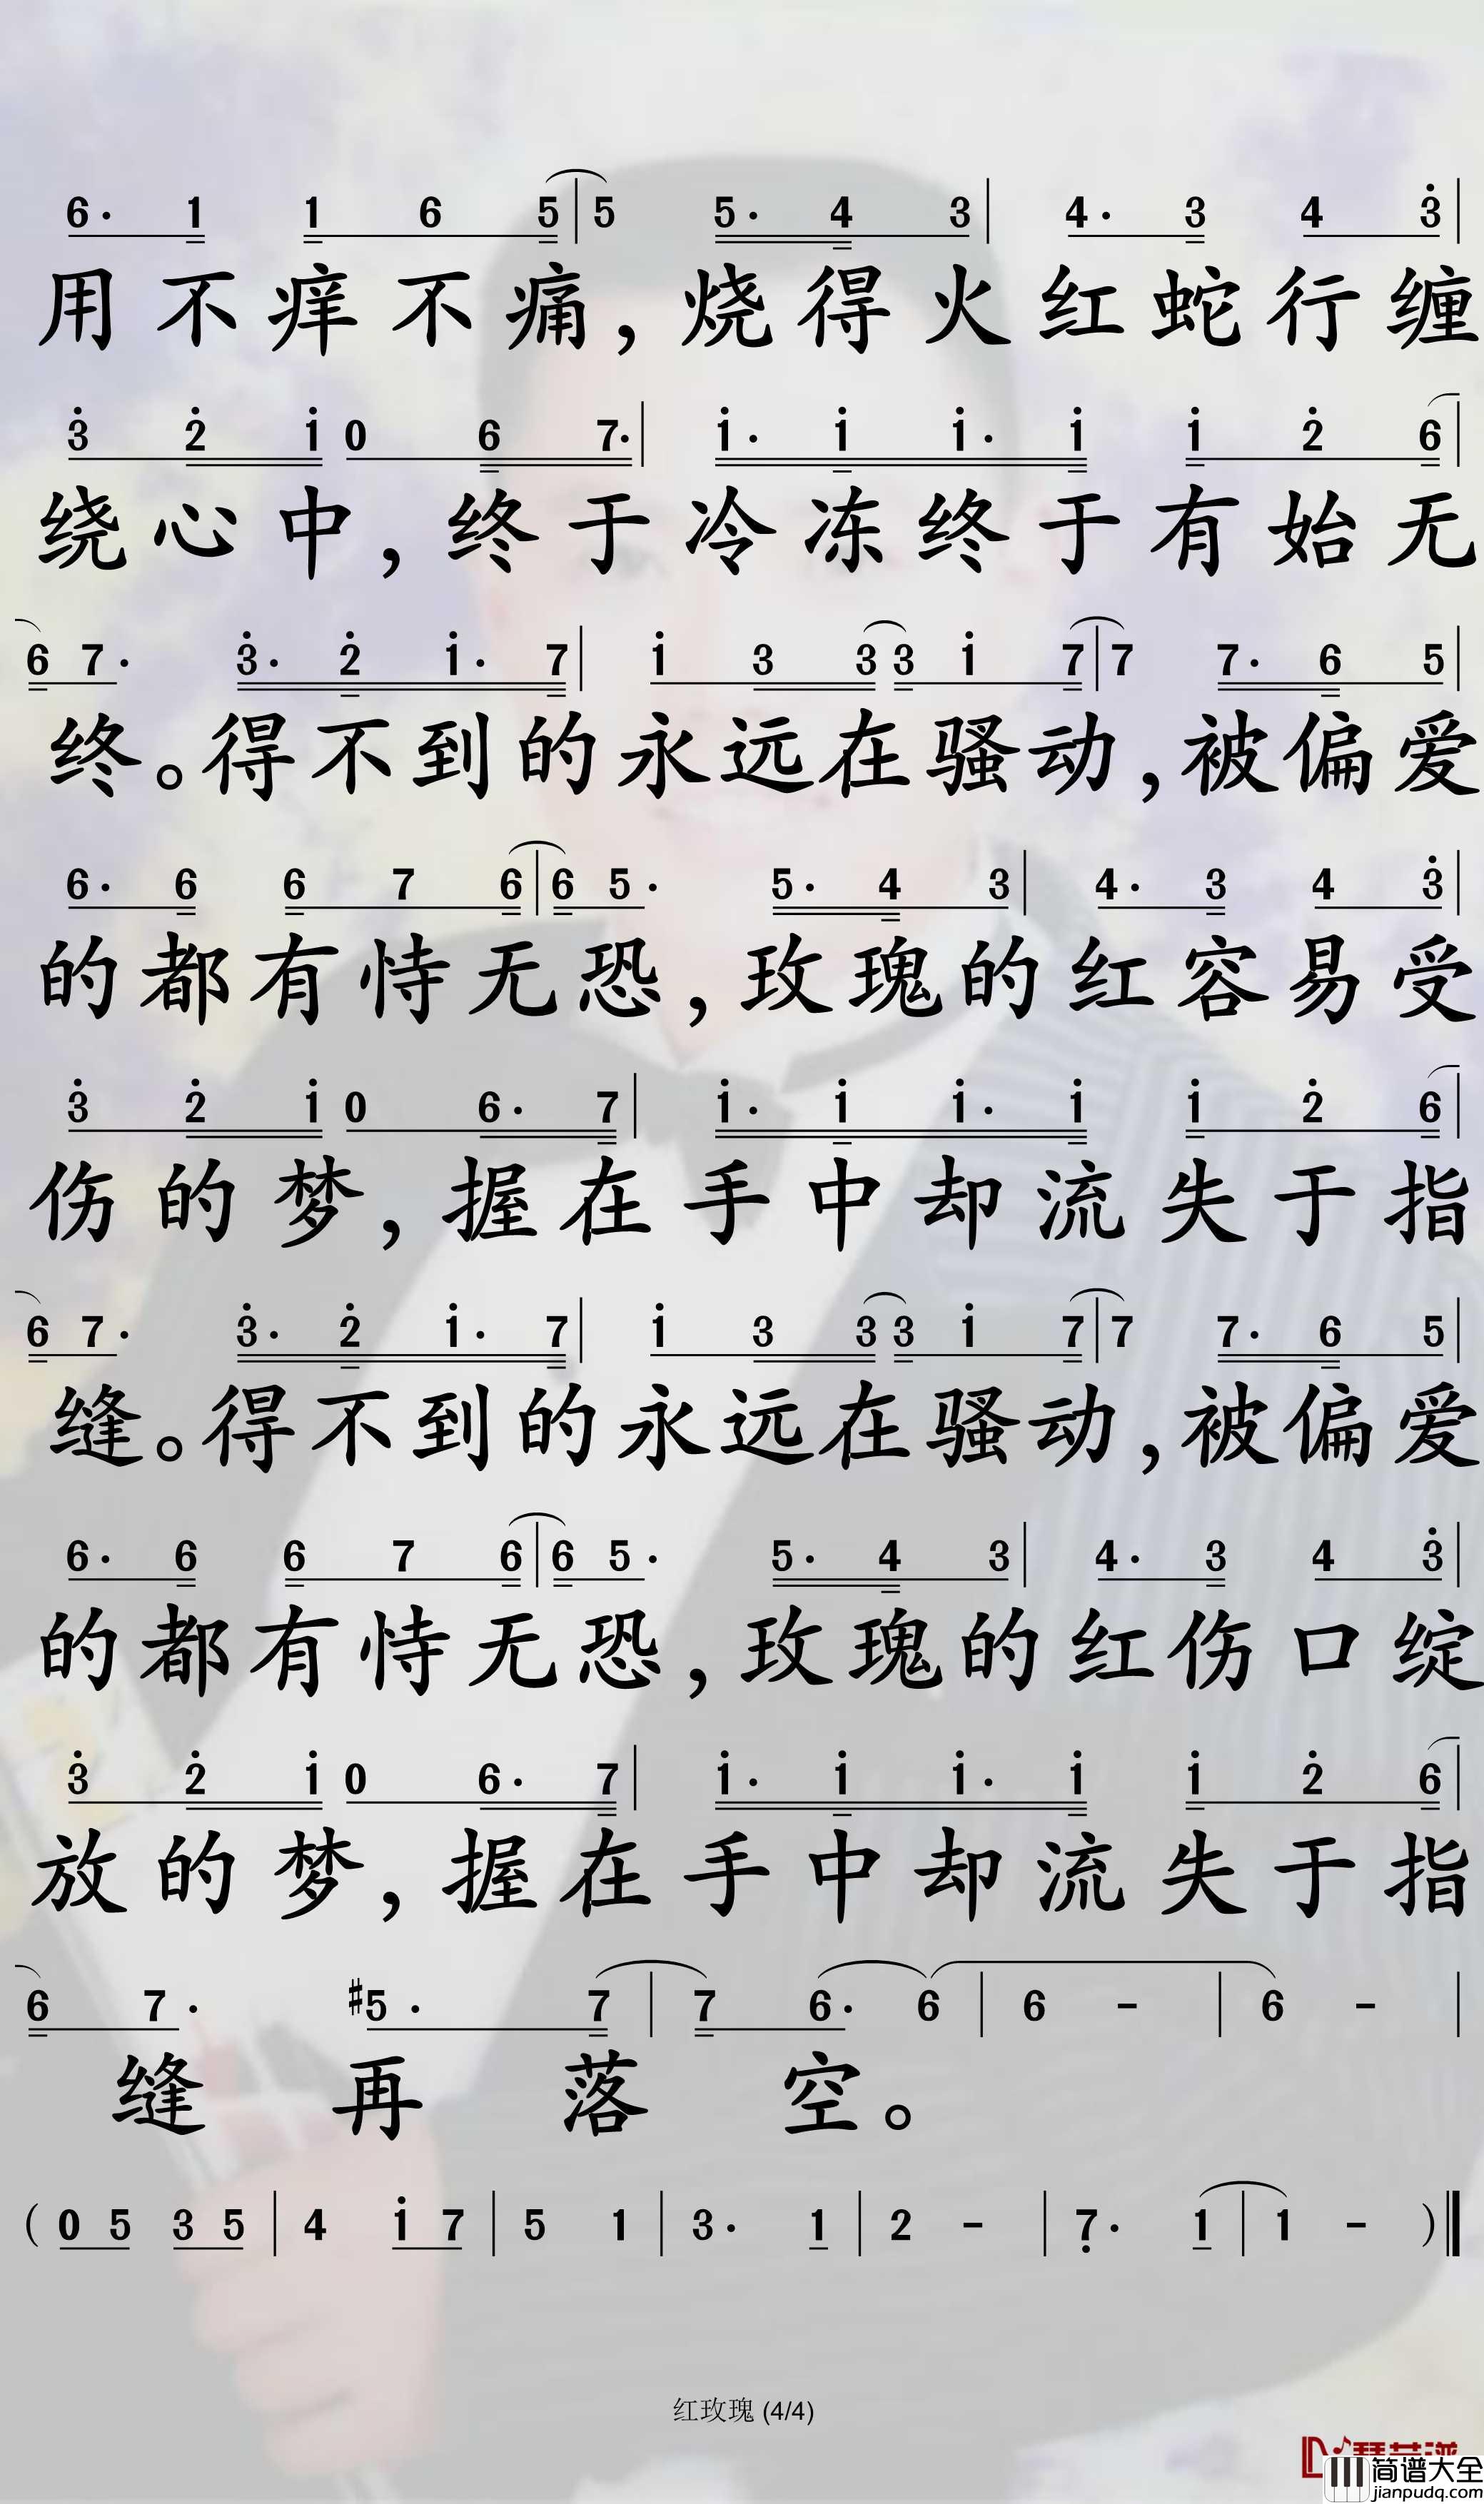 6· 1 1 6 5 | 5 5· 4 3 | 4· 3 4 3̇ |
用不痒不痛，烧得火红蛇行缠
3̇ 2̇ 1̇ 0 6 7· | 1̇· 1̇ 1̇· 1̇ 1̇ 2̇ 6 |
绕心中，终于冷冻终于有始无
6 7· 3̇· 2̇ 1̇· 7 | 1̇ 3 3 3 1̇ 7 | 7 7· 6 5 |
终。得不到的永远在骚动，被偏爱
6· 6 6 7 6 | 6 5· 5· 4 3 | 4· 3 4 3̇ |
的都有恃无恐，玫瑰的红容易受
3̇ 2̇ 1̇ 0 6· 7 | 1̇· 1̇ 1̇· 1̇ 1̇ 2̇ 6 |
伤的梦，握在手中却流失于指
6 7· 3̇· 2̇ 1̇· 7 | 1̇ 3 3 3 1̇ 7 | 7 7· 6 5 |
缝。得不到的永远在骚动，被偏爱
6· 6 6 7 6 | 6 5· 5· 4 3 | 4· 3 4 3̇ |
的都有恃无恐，玫瑰的红伤口绽
3̇ 2̇ 1̇ 0 6· 7 | 1̇· 1̇ 1̇· 1̇ 1̇ 2̇ 6 |
放的梦，握在手中却流失于指
6 7· #5· 7 | 7 6· 6 | 6 - | 6 - |
缝再落空。
( 0 5 3 5 | 4 1̇ 7 | 5 1 | 3· 1 | 2 - | 7̣· 1 | 1 - ) ‖
红玫瑰 (4/4)
简谱大全
jianpudq.com